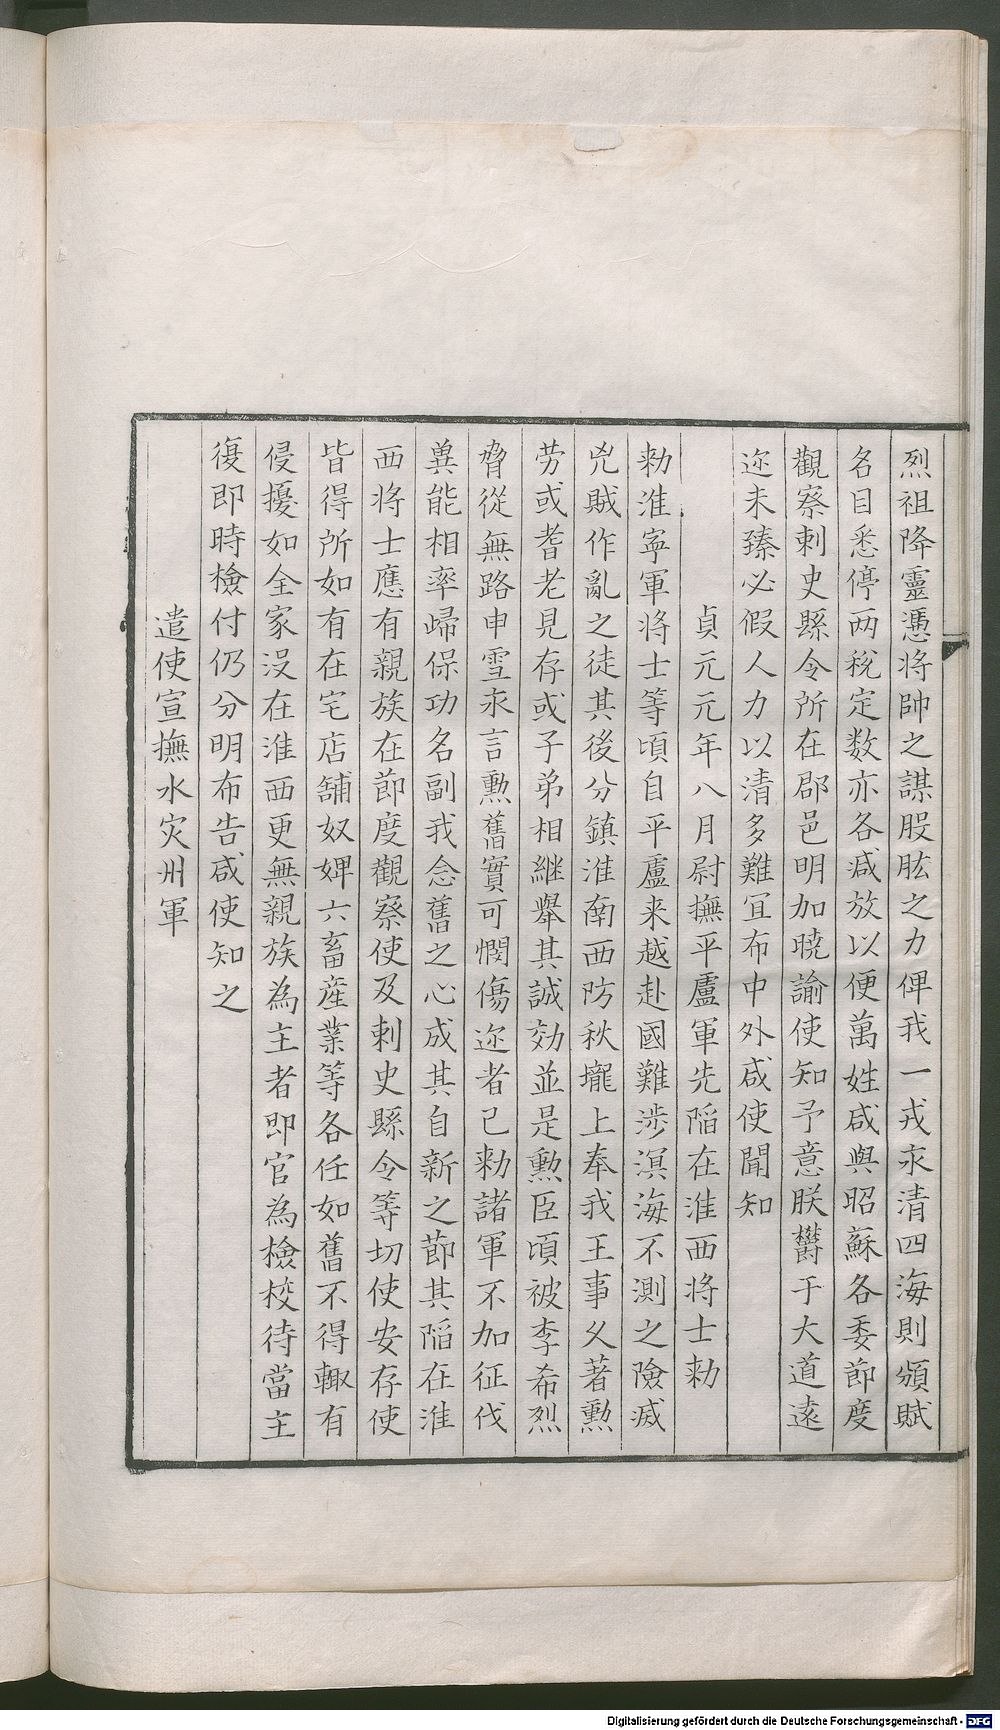 烈祖降靈憑將帥之謀股肱之力俾我一戎永清四海則頒賦
名目悉停两稅定数亦各减放以便萬姓咸與昭蘇各委節度
觀察刺史縣令所在郡邑明加曉諭使知予意朕欝于大道遠
迩未臻必假人力以清多難宜布中外咸使聞知
貞元元年八月尉撫平盧軍先䧟在淮西將士勑
勑淮寧軍將士等頃自平盧来越赴國難涉溟海不測之險㓕
兇賊作亂之徒其後分鎮淮南西防秋壠上奉我王事乆著勲
劳或耆老見存或子弟相継舉其誠効並是勲臣頃被李希烈
脅從無路申雪永言勲舊實可憫傷迩者已勑諸軍不加征伐
兾能相率歸保功名副我念舊之心成其自新之節其䧟在淮
西將士應有親族在節度觀察使及刺史縣令等切使安存使
皆得所如有在宅店舖奴婢六畜産業等各任如舊不得輙有
侵擾如全家没在淮西更無親族為主者即官為檢校待當主
復即時檢付仍分明布告咸使知之
遣使宣撫水灾州軍
Digitalisierung gefördert durch die Deutsche Forschungsgemeinschaft - DFG